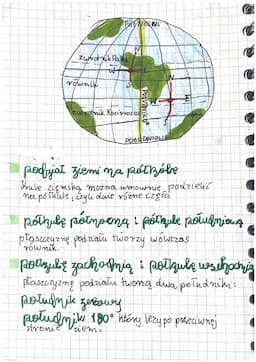 PÓŁNOCNY
zwrotnik Raka
N
W E
równik
N
W E
S
zwrotnik Koziorożca
POŁUDNIOWY
podział ziemi na półkule
Kulę ziemską można umownie podzielić
na półkule, czyli dwie różne części
półkulę północną i półkulę południową
płaszczyznę podziału tworzy wówczas
równik
półkulę zachodnią i półkulę wschodnią
płaszczyznę podziału tworzą dwa południki:
południk zerowy
południk 180° który leży po przeciwnej
stronie ziemi